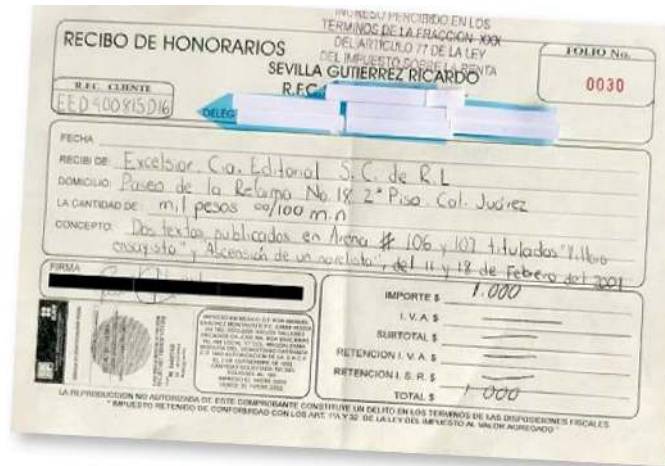 INGRESO PERCIBIDO EN LOS
TERMINOS DE LA FRACCION XXX
DEL ARTICULO 77 DE LA LEY
DEL IMPUESTO SOBRE LA RENTA
RECIBO DE HONORARIOS
SEVILLA GUTIERREZ RICARDO
R.F.C.
FOLIO No.
0030
R.F.C. CLIENTE
EED900815D16
DELEG
FECHA
RECIBI DE: Excelsior. Cia. Editorial S.C. de R.L
DOMICILIO: Paseo de la Reforma No. 18 2º Piso. Col. Juárez
LA CANTIDAD DE: mil pesos 00/100 m.n
CONCEPTO: Dos textos publicados en Arena # 106 y 107 titulados
ensayista" y "Ascensión de un novelista", del 11 y 18 de Febrero del 2001
FIRMA
IMPORTE $ 1.000
I.V.A. $
SUBTOTAL $
RETENCION I.V.A. $
RETENCION I.S.R. $
TOTAL $ 1 000
LA REPRODUCCION NO AUTORIZADA DE ESTE COMPROBANTE CONSTITUYE UN DELITO EN LOS TERMINOS DE LAS DISPOSICIONES FISCALES
"IMPUESTO RETENIDO DE CONFORMIDAD CON LOS ART. 1ºA Y 32 DE LA LEY DEL IMPUESTO AL VALOR AGREGADO"